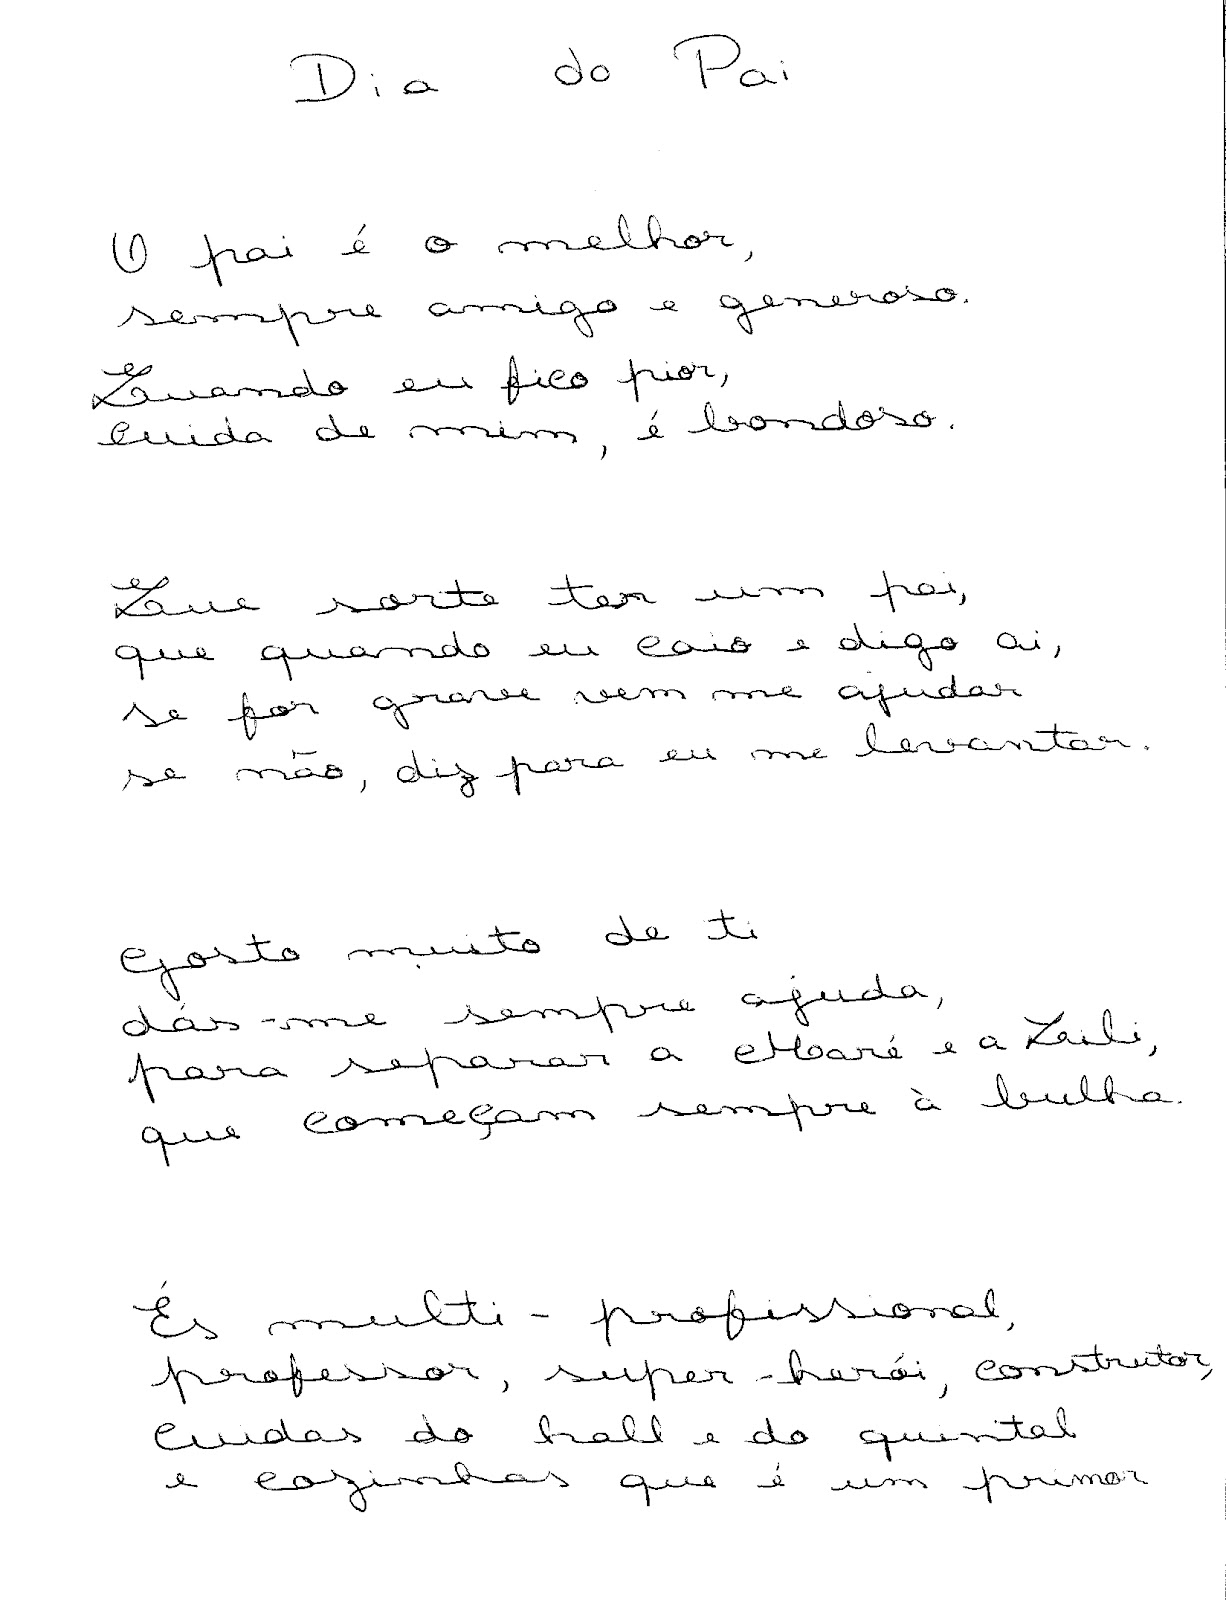 Dia do Pai
O pai é o melhor,
sempre amigo e generoso.
Quando eu fico pior,
cuida de mim, é bondoso.
Que sorte ter um pai,
que quando eu caio e digo ai,
se for grave vem me ajudar
se não, diz para eu me levantar.
Gosto muito de ti
dás-me sempre ajuda,
para separar a Maré e a
que começam sempre à bulha.
És multi-profissional,
professor, super-herói, construtor,
cuidas do hall e do quintal
e cozinhas que é um primor